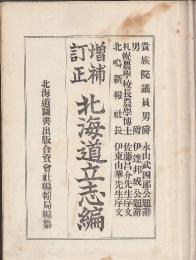 貴族院議員男爵 永山武四郎公題辭
男爵 伊達邦成公題辭
札幌農學校長農學博士 佐藤昌介先生序文
北鳴新報社長 伊東山華先生序文
増補
訂正
北海道立志編
北海道圖書出版合資會社編輯局編纂